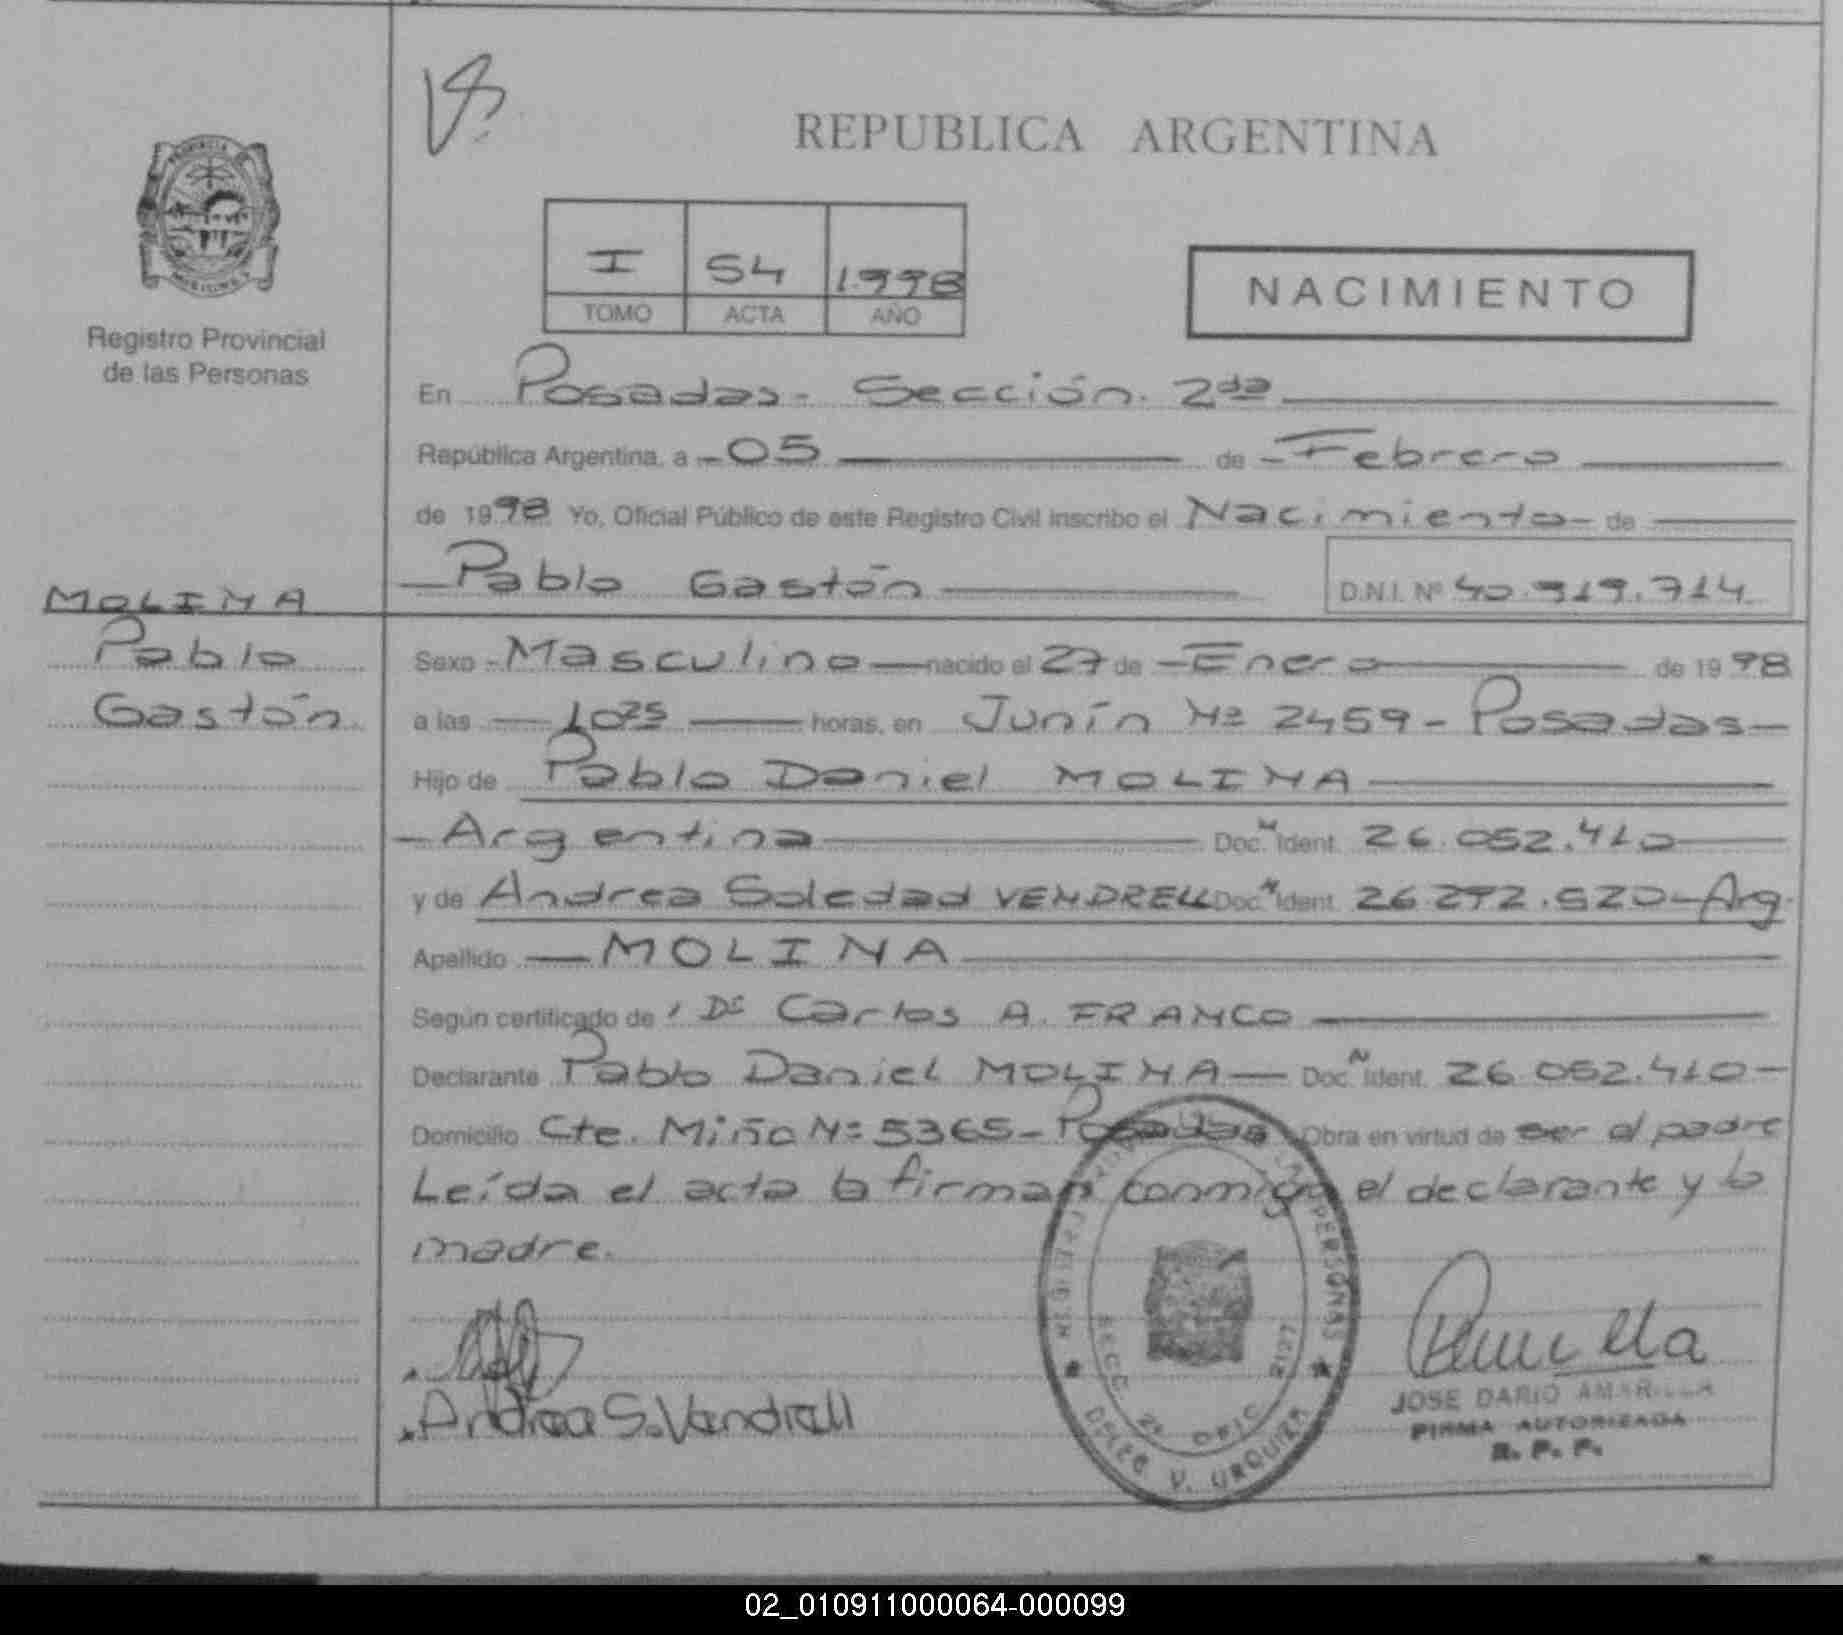 REPUBLICA ARGENTINA
I 54 1.998
TOMO ACTA AÑO
NACIMIENTO
Registro Provincial
de las Personas
En Posadas - Sección 2da
República Argentina, a 05 de Febrero
de 1998 Yo, Oficial Público de este Registro Civil inscribo el Nacimiento de
Pablo Gastón D.N.I. Nº 40.919.714
MOLINA
Pablo
Gastón
Sexo Masculino nacido el 27 de Enero de 1998
a las 10 25 horas, en Junín Nº 2459 - Posadas
Hijo de Pablo Daniel MOLINA
Argentina Doc. N Ident. 26.052.410
y de Andrea Soledad VENDRELL Doc. N Ident. 26.272.520 - Arg.
Apellido MOLINA
Según certificado de Dr Carlos A. FRANCO
Declarante Pablo Daniel MOLINA Doc. N Ident. 26.052.410
Domicilio Cte. Miño Nº 5365 - Posadas Obra en virtud de ser el padre
Leída el acta la firman conmigo el declarante y la
madre.
Andrea S. Vendrell
PERSONAS
SECC. 2ª OFIC.
URQUIZA
JOSE DARIO AMARILLA
FIRMA AUTORIZADA
R. P. P.
02_010911000064-000099